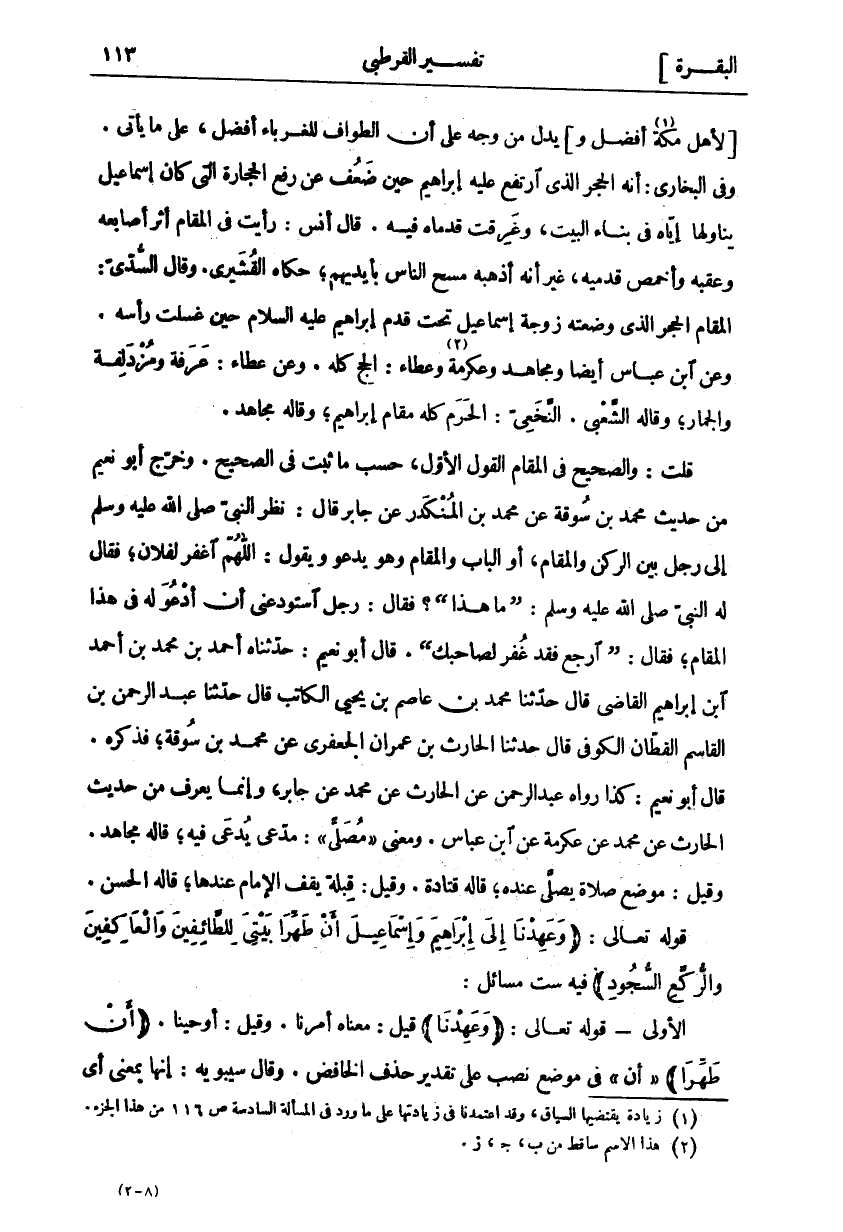 البقـــرة ] تفســـير القرطبى ١١٣
[لأهل مكة(١) أفضـل و] يدل من وجه على أن الطواف للغرباء أفضل، على ما يأتى .
وفى البخارى: أنه الحجر الذى آرتفع عليه إبراهيم حين ضَعُف عن رفع الحجارة التى كان إسماعيل
يناولها إيّاه فى بنـاء البيت، وغَرِقت قدماه فيـه . قال أنس : رأيت فى المقام أثر أصابعه
وعقبه وأخمص قدميه، غير أنه أذهبه مسح الناس بأيديهم؛ حكاه القُشَيرى. وقال السُّدّىّ:
المقام الحجر الذى وضعته زوجة إسماعيل تحت قدم إبراهيم عليه السلام حين غسلت رأسه .
وعن آبن عبـاس أيضا ومجاهـد وعكرمة(٢) وعطاء : الحج كله . وعن عطاء : عَرَفة ومُزْدَلِفـة
والجمار؛ وقاله الشَّعْبى . النَّخَعِىّ : الحَرَم كله مقام إبراهيم؛ وقاله مجاهد .
قلت : والصحيح فى المقام القول الأوّل، حسب ما ثبت فى الصحيح . وخرّج أبو نعيم
من حديث محمد بن سُوقة عن محمد بن المُنْكَدر عن جابر قال : نظر النبىّ صلى الله عليه وسلم
إلى رجل بين الركن والمقام، أو الباب والمقام وهو يدعو ويقول : اللَّهُمّ آغفر لفلان؛ فقال
له النبىّ صلى الله عليه وسلم : ”ما هـذا“؟ فقال : رجل آستودعنى أن أدْعُوَ له فى هذا
المقام؛ فقال : ” آرجع فقد غُفر لصاحبك“ . قال أبو نعيم : حدّثناه أحمد بن محمد بن أحمد
آبن إبراهيم القاضى قال حدّثنا محمد بن عاصم بن يحيى الكاتب قال حدّثنا عبـد الرحمن بن
القاسم القطّان الكوفى قال حدثنا الحارث بن عمران الجعفرى عن محمـد بن سُوقة؛ فذكره .
قال أبو نعيم : كذا رواه عبدالرحمن عن الحارث عن محمد عن جابر، وإنمـا يعرف من حديث
الحارث عن محمد عن عكرمة عن آبن عباس . ومعنى «مُصَلًّى» : مدّعى يُدعَى فيه؛ قاله مجاهد .
وقيل : موضع صلاة يصلَّى عنده؛ قاله قتادة . وقيل: قبلة يقف الإمام عندها؛ قاله الحسن .
قوله تعـالى : ﴿وَعَهِدْنَا إِلَى إِبْرَاهِيمَ وَإِسْمَاعِيـلَ أَنْ طَهِّرَا بَيْتِىَ لِلطَّائِفِينَ وَالْعَاكِفِينَ
والرُّكَّعِ السُّجُودِ﴾ فيه ست مسائل :
الأولى – قوله تعـالى : ﴿وَعَهِدْنَا﴾ قيل : معناه أمرنا . وقيل : أوحينا . ﴿أَنْ
طَهِّرَا﴾ « أن» فى موضع نصب على تقدير حذف الخافض . وقال سيبويه : إنها بمعنى أى
(١) زيادة يقتضيها السياق، وقد اعتمدنا فى زيادتها على ما ورد فى المسألة السادسة ص ١١٦ من هذا الجزء.
(٢) هذا الاسم ساقط من ب، ج، ز .
(٨-٢)